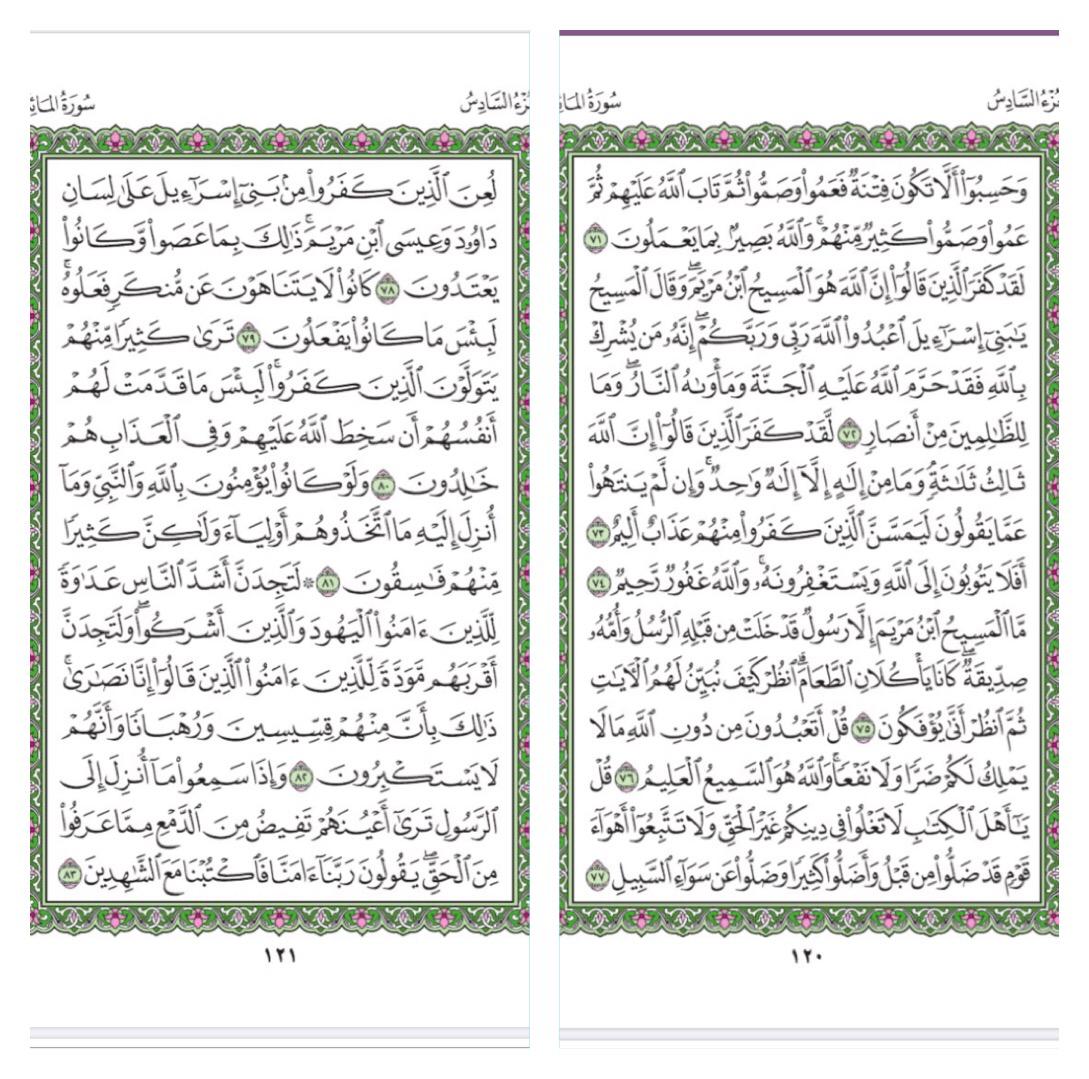 زءُ السَّادِسُ سُورَةُ المَا
وَحَسِبُوٓا۟ أَلَّا تَكُونَ فِتْنَةٌ فَعَمُوا۟ وَصَمُّوا۟ ثُمَّ تَابَ ٱللَّهُ عَلَيْهِمْ ثُمَّ
عَمُوا۟ وَصَمُّوا۟ كَثِيرٌ مِّنْهُمْ ۚ وَٱللَّهُ بَصِيرٌۢ بِمَا يَعْمَلُونَ ٧١
لَقَدْ كَفَرَ ٱلَّذِينَ قَالُوٓا۟ إِنَّ ٱللَّهَ هُوَ ٱلْمَسِيحُ ٱبْنُ مَرْيَمَ ۖ وَقَالَ ٱلْمَسِيحُ
يَـٰبَنِىٓ إِسْرَٰٓءِيلَ ٱعْبُدُوا۟ ٱللَّهَ رَبِّى وَرَبَّكُمْ ۖ إِنَّهُۥ مَن يُشْرِكْ
بِٱللَّهِ فَقَدْ حَرَّمَ ٱللَّهُ عَلَيْهِ ٱلْجَنَّةَ وَمَأْوَىٰهُ ٱلنَّارُ ۖ وَمَا
لِلظَّـٰلِمِينَ مِنْ أَنصَارٍ ٧٢ لَّقَدْ كَفَرَ ٱلَّذِينَ قَالُوٓا۟ إِنَّ ٱللَّهَ
ثَالِثُ ثَلَـٰثَةٍ ۘ وَمَا مِنْ إِلَـٰهٍ إِلَّآ إِلَـٰهٌ وَٰحِدٌ ۚ وَإِن لَّمْ يَنتَهُوا۟
عَمَّا يَقُولُونَ لَيَمَسَّنَّ ٱلَّذِينَ كَفَرُوا۟ مِنْهُمْ عَذَابٌ أَلِيمٌ ٧٣
أَفَلَا يَتُوبُونَ إِلَى ٱللَّهِ وَيَسْتَغْفِرُونَهُۥ ۚ وَٱللَّهُ غَفُورٌ رَّحِيمٌ ٧٤
مَّا ٱلْمَسِيحُ ٱبْنُ مَرْيَمَ إِلَّا رَسُولٌ قَدْ خَلَتْ مِن قَبْلِهِ ٱلرُّسُلُ وَأُمُّهُۥ
صِدِّيقَةٌ ۖ كَانَا يَأْكُلَانِ ٱلطَّعَامَ ۗ ٱنظُرْ كَيْفَ نُبَيِّنُ لَهُمُ ٱلْـَٔايَـٰتِ
ثُمَّ ٱنظُرْ أَنَّىٰ يُؤْفَكُونَ ٧٥ قُلْ أَتَعْبُدُونَ مِن دُونِ ٱللَّهِ مَا لَا
يَمْلِكُ لَكُمْ ضَرًّا وَلَا نَفْعًا ۚ وَٱللَّهُ هُوَ ٱلسَّمِيعُ ٱلْعَلِيمُ ٧٦ قُلْ
يَـٰٓأَهْلَ ٱلْكِتَـٰبِ لَا تَغْلُوا۟ فِى دِينِكُمْ غَيْرَ ٱلْحَقِّ وَلَا تَتَّبِعُوٓا۟ أَهْوَآءَ
قَوْمٍ قَدْ ضَلُّوا۟ مِن قَبْلُ وَأَضَلُّوا۟ كَثِيرًا وَضَلُّوا۟ عَن سَوَآءِ ٱلسَّبِيلِ ٧٧
١٢٠
زءُ السَّادِسُ سُورَةُ المَائِ
لُعِنَ ٱلَّذِينَ كَفَرُوا۟ مِنۢ بَنِىٓ إِسْرَٰٓءِيلَ عَلَىٰ لِسَانِ
دَاوُۥدَ وَعِيسَى ٱبْنِ مَرْيَمَ ۚ ذَٰلِكَ بِمَا عَصَوا۟ وَّكَانُوا۟
يَعْتَدُونَ ٧٨ كَانُوا۟ لَا يَتَنَاهَوْنَ عَن مُّنكَرٍ فَعَلُوهُ ۚ
لَبِئْسَ مَا كَانُوا۟ يَفْعَلُونَ ٧٩ تَرَىٰ كَثِيرًا مِّنْهُمْ
يَتَوَلَّوْنَ ٱلَّذِينَ كَفَرُوا۟ ۚ لَبِئْسَ مَا قَدَّمَتْ لَهُمْ
أَنفُسُهُمْ أَن سَخِطَ ٱللَّهُ عَلَيْهِمْ وَفِى ٱلْعَذَابِ هُمْ
خَـٰلِدُونَ ٨٠ وَلَوْ كَانُوا۟ يُؤْمِنُونَ بِٱللَّهِ وَٱلنَّبِىِّ وَمَآ
أُنزِلَ إِلَيْهِ مَا ٱتَّخَذُوهُمْ أَوْلِيَآءَ وَلَـٰكِنَّ كَثِيرًا
مِّنْهُمْ فَـٰسِقُونَ ٨١ ۞ لَتَجِدَنَّ أَشَدَّ ٱلنَّاسِ عَدَٰوَةً
لِّلَّذِينَ ءَامَنُوا۟ ٱلْيَهُودَ وَٱلَّذِينَ أَشْرَكُوا۟ ۖ وَلَتَجِدَنَّ
أَقْرَبَهُم مَّوَدَّةً لِّلَّذِينَ ءَامَنُوا۟ ٱلَّذِينَ قَالُوٓا۟ إِنَّا نَصَـٰرَىٰ ۚ
ذَٰلِكَ بِأَنَّ مِنْهُمْ قِسِّيسِينَ وَرُهْبَانًا وَأَنَّهُمْ
لَا يَسْتَكْبِرُونَ ٨٢ وَإِذَا سَمِعُوا۟ مَآ أُنزِلَ إِلَى
ٱلرَّسُولِ تَرَىٰٓ أَعْيُنَهُمْ تَفِيضُ مِنَ ٱلدَّمْعِ مِمَّا عَرَفُوا۟
مِنَ ٱلْحَقِّ ۖ يَقُولُونَ رَبَّنَآ ءَامَنَّا فَٱكْتُبْنَا مَعَ ٱلشَّـٰهِدِينَ ٨٣
١٢١